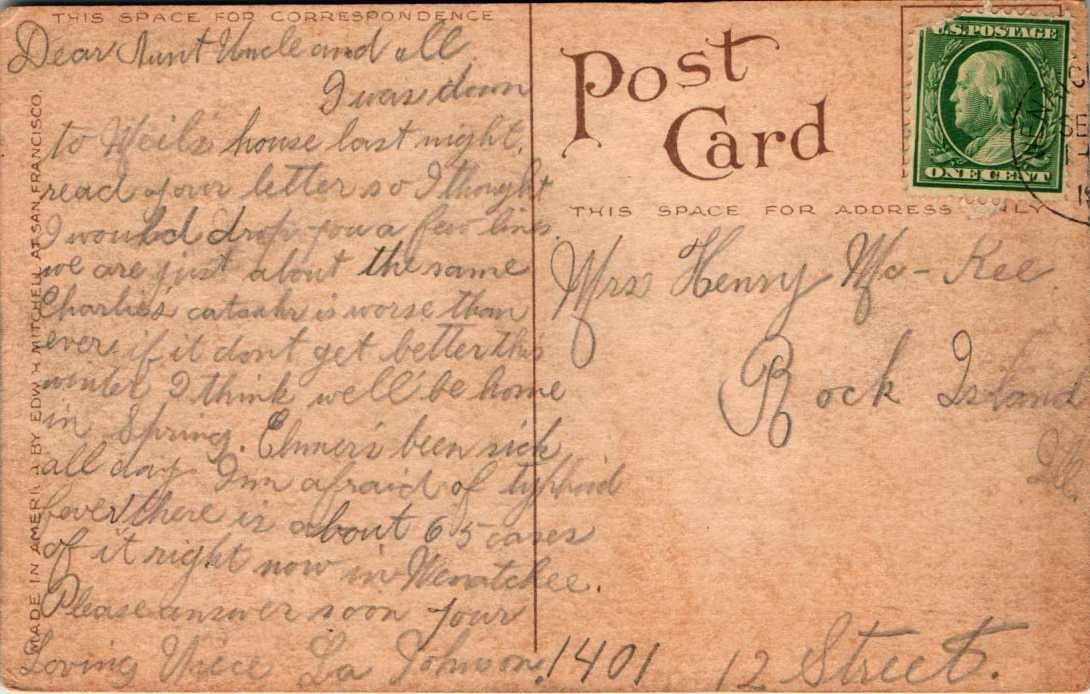 THIS SPACE FOR CORRESPONDENCE
Dear Aunt Uncle and all
I was down
to Weil's house last night,
read your letter so I thought
I would drop you a few lines
we are just about the same
Charlies catarhr is worse than
ever, if it dont get better this
winter I think we'll be home
in Spring. Elmer's been sick
all day I'm afraid of typhoid
fever there is about 65 cases
of it right now in Wenatchee.
Please answer soon your
Loving Niece La Johnson,
MADE IN AMERICA BY EDW. H. MITCHELL AT SAN FRANCISCO.
Post
Card
U.S. POSTAGE
ONE CENT
THIS SPACE FOR ADDRESS ONLY
Mrs Henry Mc-Kee
Rock Island
Ill.
1401 12 Street.